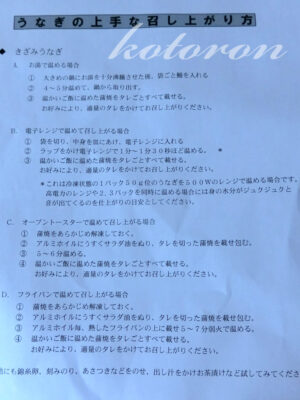 うなぎの上手な召し上がり方
kotoron
● きざみうなぎ
A. お湯で温める場合
① 大きめの鍋にお湯を十分沸騰させた後、袋ごと鰻を入れる
② 4~5分温めて、鍋から取り出す。
③ 温かいご飯に温めた蒲焼をタレごとすべて載せる。
お好みにより、適量のタレをかけてお召し上がりください。
B. 電子レンジで温めて召し上がる場合
① 袋を切り、中身を皿にあけ、電子レンジに入れる
② ラップをかけ電子レンジで1分~1分30秒ほど温める。 *
③ 温かいご飯に温めた蒲焼をタレごとすべて載せる。
お好みにより、適量のタレをかけてお召し上がりください。
*これは冷凍状態の1パック50g位のうなぎを500Wのレンジで温める場合です。
高電力のレンジや2、3パックを同時に温める場合には身の水分がジュクジュクと
音が出てくるのを仕上がりの目安としてください。
C. オーブントースターで温めて召し上がる場合
① 蒲焼をあらかじめ解凍しておく。
② アルミホイルにうすくサラダ油をぬり、タレを切った蒲焼を載せ包む。
③ 5~6分温める。
④ 温かいご飯に温めた蒲焼をタレごとすべて載せる。
お好みにより、適量のタレをかけてお召し上がりください。
D. フライパンで温めて召し上がる場合
① 蒲焼をあらかじめ解凍しておく。
② アルミホイルにうすくサラダ油をぬり、タレを切った蒲焼を載せ包む。
③ アルミホイル毎、熱したフライパンの上に載せ5~7分弱火で温める。
④ 温かいご飯に温めた蒲焼をタレごとすべて載せる。
お好みにより、適量のタレをかけてお召し上がりください。
にも錦糸卵、刻みのり、あさつきなどをのせ、出し汁をかけお茶漬けなど試してみてくださ